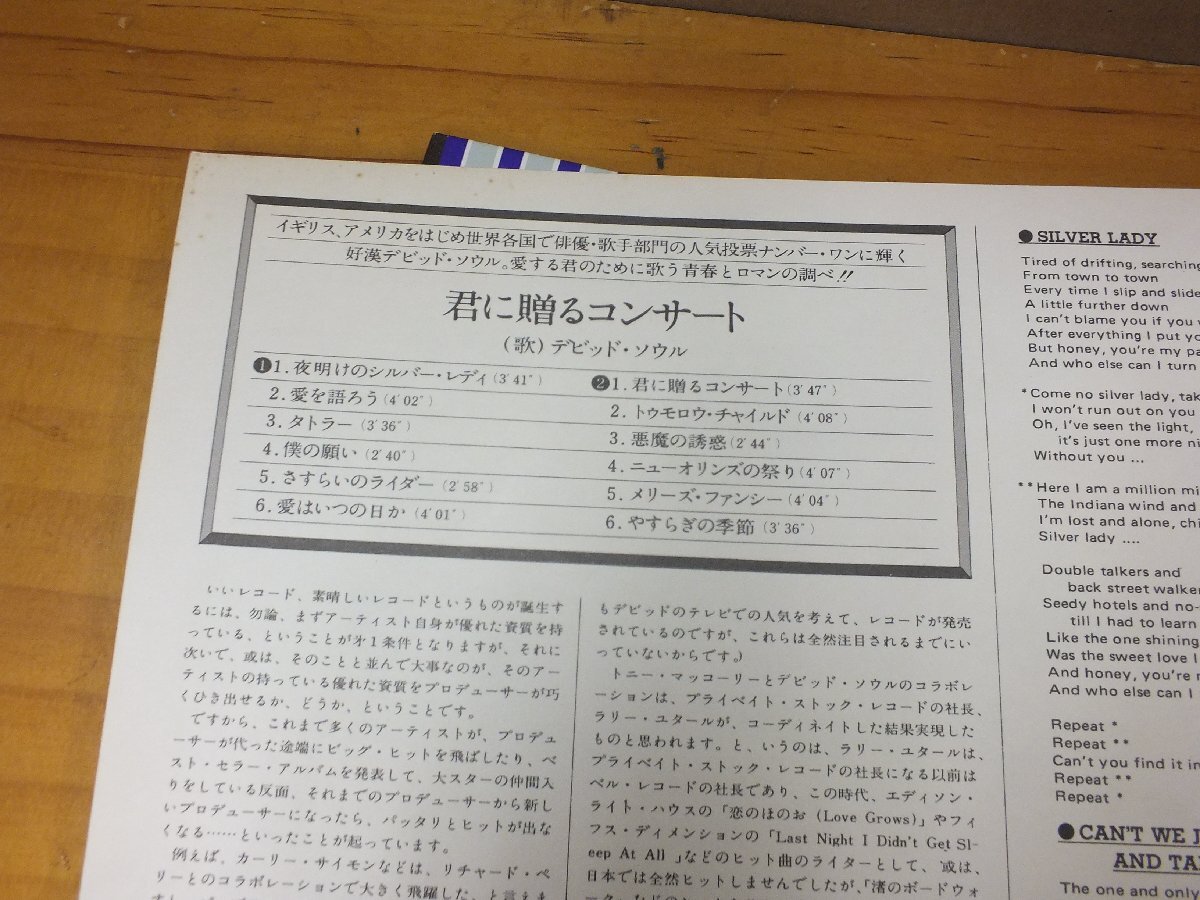 イギリス、アメリカをはじめ世界各国で俳優・歌手部門の人気投票ナンバー・ワンに輝く
好漢デビッド・ソウル。愛する君のために歌う青春とロマンの調べ!!
君に贈るコンサート
(歌) デビッド・ソウル
❶1. 夜明けのシルバー・レディ (3′41″)
2. 愛を語ろう (4′02″)
3. タトラー (3′36″)
4. 僕の願い (2′40″)
5. さすらいのライダー (2′58″)
6. 愛はいつの日か (4′01″)
❷1. 君に贈るコンサート (3′47″)
2. トゥモロウ・チャイルド (4′08″)
3. 悪魔の誘惑 (2′44″)
4. ニューオリンズの祭り (4′07″)
5. メリーズ・ファンシー (4′04″)
6. やすらぎの季節 (3′36″)
いいレコード、素晴しいレコードというものが誕生す
るには、勿論、まずアーティスト自身が優れた資質を持
っている、ということが㐧1条件となりますが、それに
次いで、或は、そのことと並んで大事なのが、そのアー
ティストの持っている優れた資質をプロデューサーが巧
くひき出せるか、どうか、ということです。
ですから、これまで多くのアーティストが、プロデュ
ーサーが代った途端にビッグ・ヒットを飛ばしたり、ベ
スト・セラー・アルバムを発表して、大スターの仲間入
りをしている反面、それまでのプロデューサーから新し
いプロデューサーになったら、パッタリとヒットが出な
くなる……といったことが起っています。
例えば、カーリー・サイモンなどは、リチャード・ペ
リーとのコラボレーションで大きく飛躍した、と言えま
もデビッドのテレビでの人気を考えて、レコードが発売
されているのですが、これらは全然注目されるまでにい
っていないからです。)
トニー・マッコーリーとデビッド・ソウルのコラボレ
ーションは、プライベイト・ストック・レコードの社長、
ラリー・ユタールが、コーディネイトした結果実現した
ものと思われます。と、いうのは、ラリー・ユタールは、
プライベイト・ストック・レコードの社長になる以前は
ベル・レコードの社長であり、この時代、エディソン・
ライト・ハウスの「恋のほのお (Love Grows)」やフィ
フス・ディメンションの「Last Night I Didn't Get Sl-
eep At All」などのヒット曲のライターとして、或は、
日本では全然ヒットしませんでしたが、「渚のボードウォ
● SILVER LADY
Tired of drifting, searching
From town to town
Every time I slip and slide
A little further down
I can't blame you if you
After everything I put yo
But honey, you're my pa
And who else can I turn
*Come no silver lady, tak
I won't run out on you
Oh, I've seen the light,
it's just one more ni
Without you ...
**Here I am a million mi
The Indiana wind and
I'm lost and alone, chi
Silver lady ....
Double talkers and
back street walker
Seedy hotels and no-
till I had to learn
Like the one shining
Was the sweet love I
And honey, you're m
And who else can I
Repeat *
Repeat **
Can't you find it in
Repeat **
Repeat *
● CAN'T WE J
AND TA
The one and only